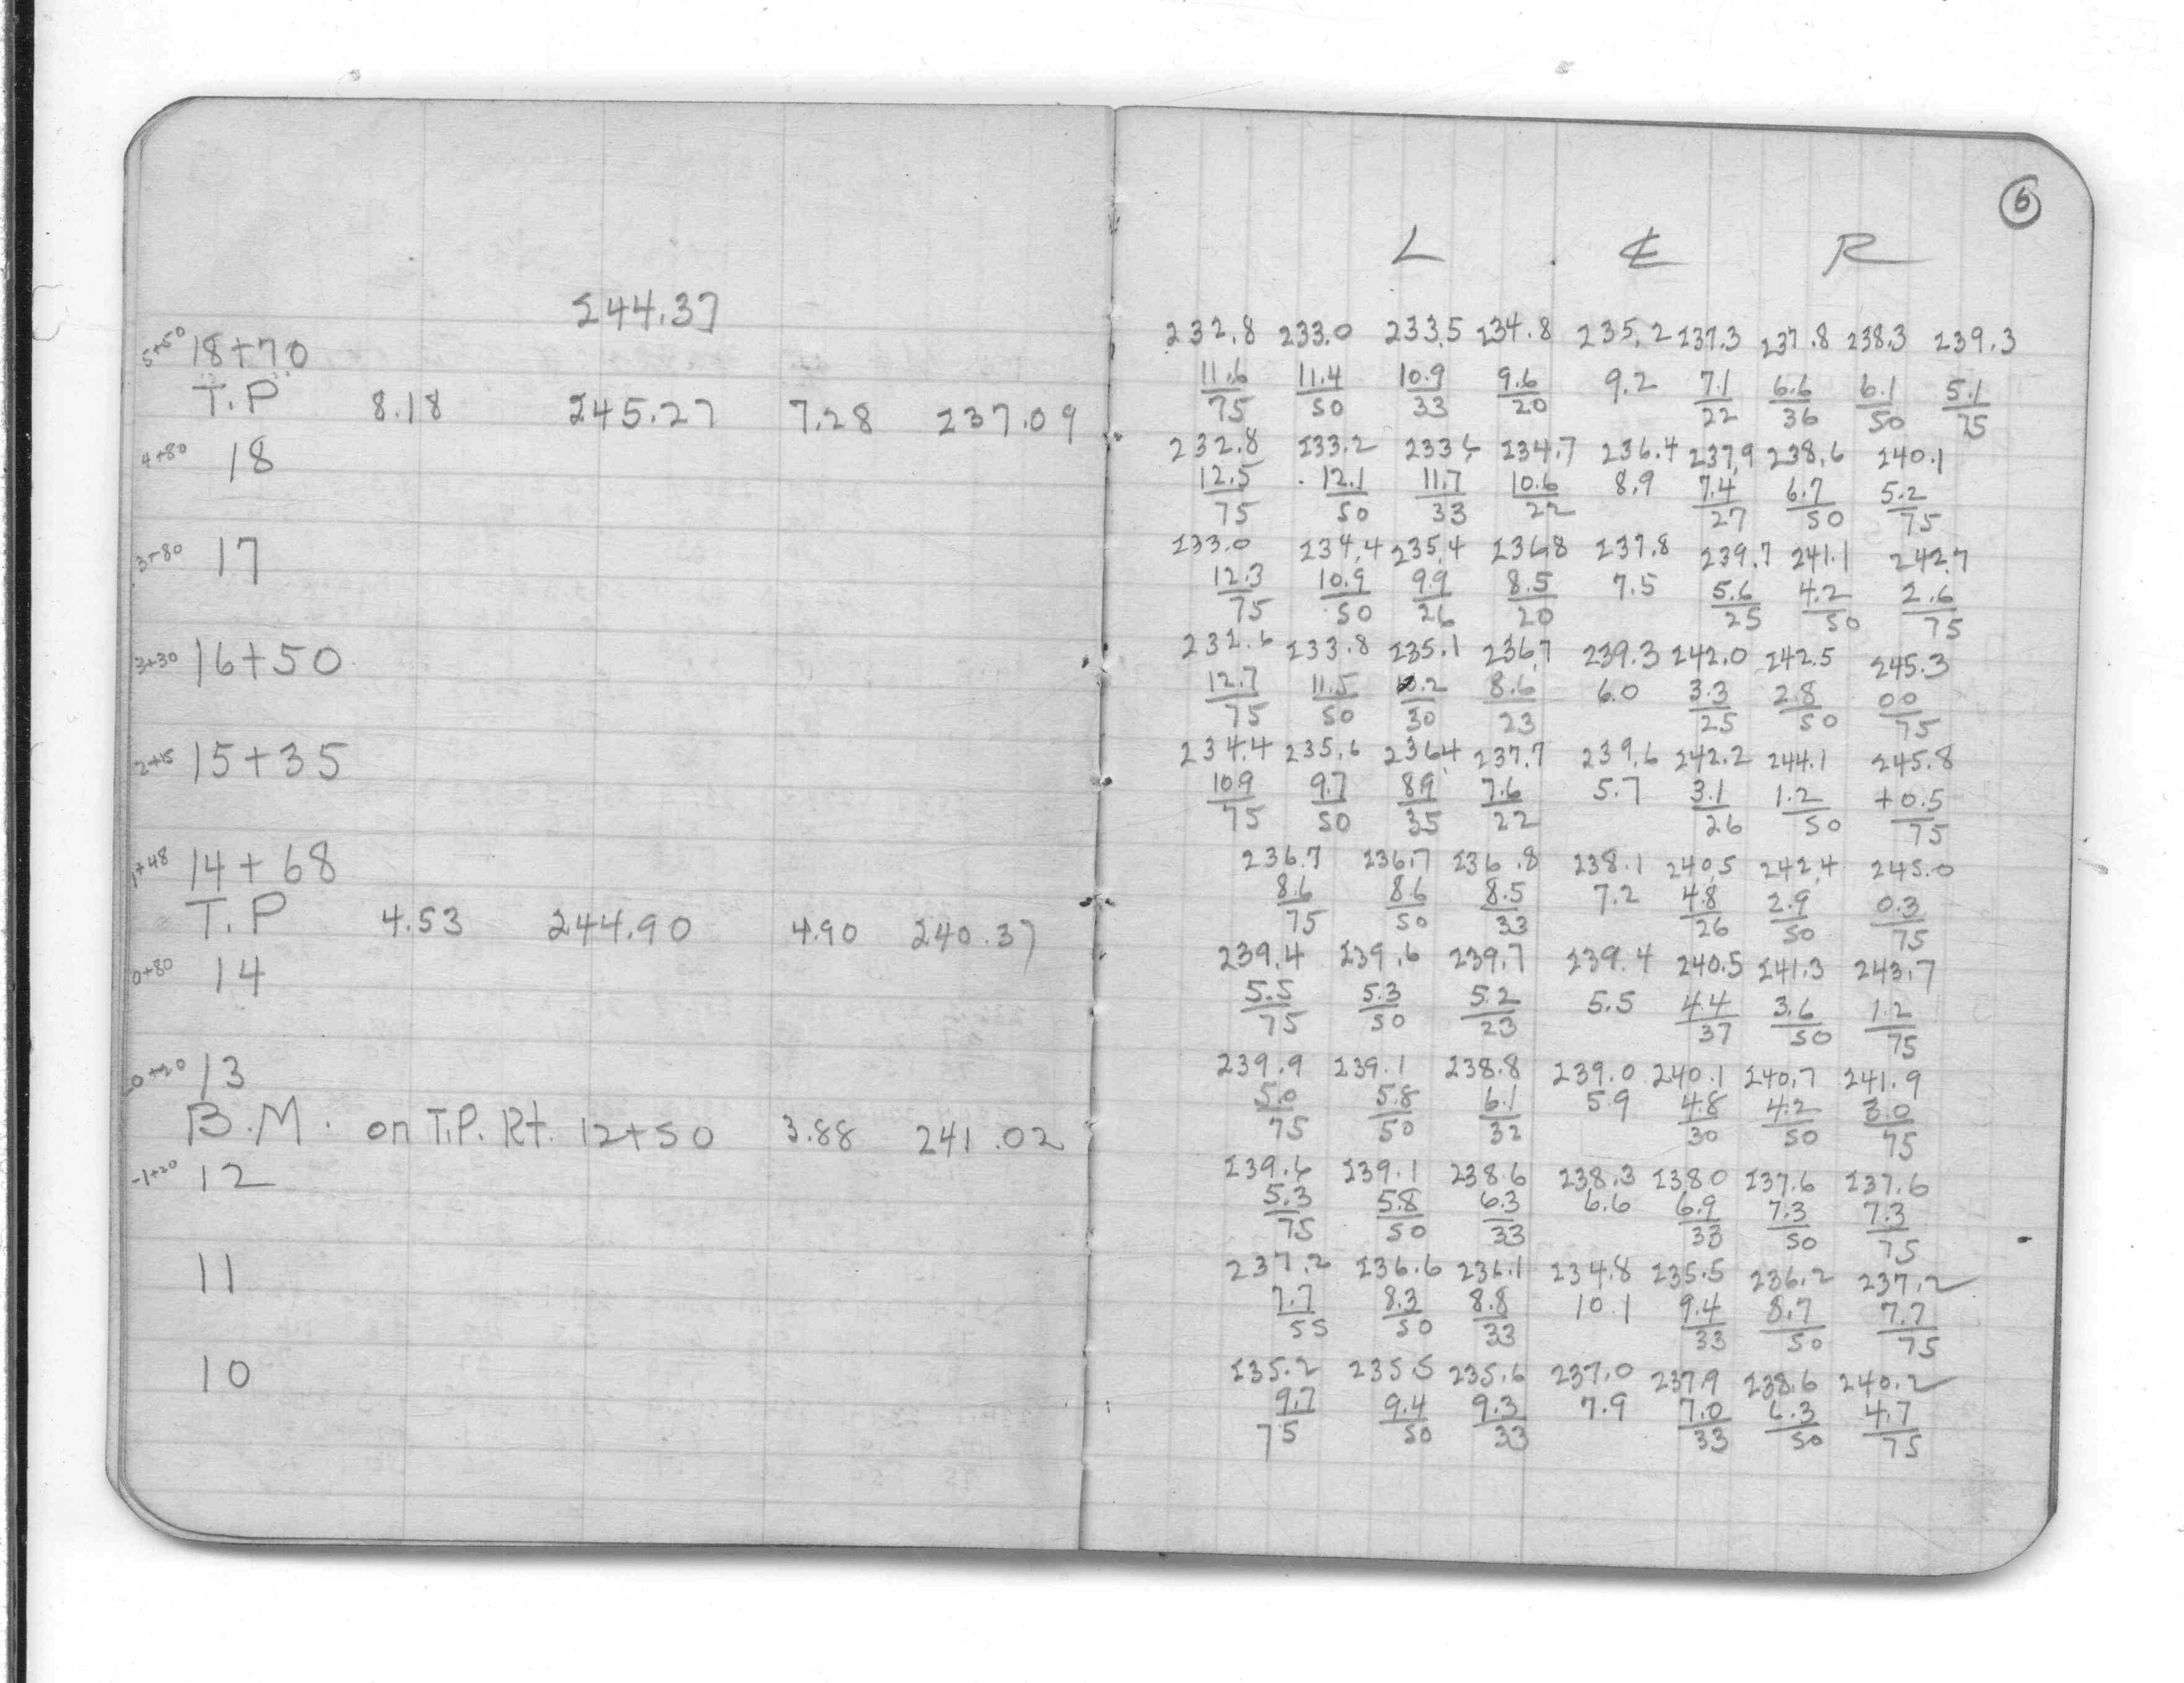 244.37
5+50 18+70
T.P 8.18 245.27 7.28 237.09
4+80 18
3+80 17
3+30 16+50
2+15 15+35
1+48 14+68
T.P 4.53 244.90 4.90 240.37
0+80 14
-0+20 13
B.M. on T.P. Rt. 12+50 3.88 241.02
-1+20 12
11
10
6
L ℄ R
232.8 233.0 233.5 234.8 235.2 237.3 237.8 238.3 239.3
11.6 11.4 10.9 9.6 9.2 7.1 6.6 6.1 5.1
75 50 33 20 22 36 50 75
232.8 233.2 233.6 234.7 236.4 237.9 238.6 240.1
12.5 12.1 11.7 10.6 8.9 7.4 6.7 5.2
75 50 33 22 27 50 75
233.0 234.4 235.4 236.8 237.8 239.7 241.1 242.7
12.3 10.9 9.9 8.5 7.5 5.6 4.2 2.6
75 50 26 20 25 50 75
232.6 233.8 235.1 236.7 239.3 242.0 242.5 245.3
12.7 11.5 10.2 8.6 6.0 3.3 2.8 00
75 50 30 23 25 50 75
234.4 235.6 236.4 237.7 239.6 242.2 244.1 245.8
10.9 9.7 8.9 7.6 5.7 3.1 1.2 +0.5
75 50 35 22 26 50 75
236.7 236.7 236.8 238.1 240.5 242.4 245.0
8.6 8.6 8.5 7.2 4.8 2.9 0.3
75 50 33 26 50 75
239.4 239.6 239.7 239.4 240.5 241.3 243.7
5.5 5.3 5.2 5.5 4.4 3.6 1.2
75 50 23 37 50 75
239.9 239.1 238.8 239.0 240.1 240.7 241.9
5.0 5.8 6.1 5.9 4.8 4.2 3.0
75 50 32 30 50 75
239.6 239.1 238.6 238.3 238.0 237.6 237.6
5.3 5.8 6.3 6.6 6.9 7.3 7.3
75 50 33 33 50 75
237.2 236.6 236.1 234.8 235.5 236.2 237.2
7.7 8.3 8.8 10.1 9.4 8.7 7.7
55 50 33 33 50 75
235.2 235.5 235.6 237.0 237.9 238.6 240.2
9.7 9.4 9.3 7.9 7.0 6.3 4.7
75 50 33 33 50 75